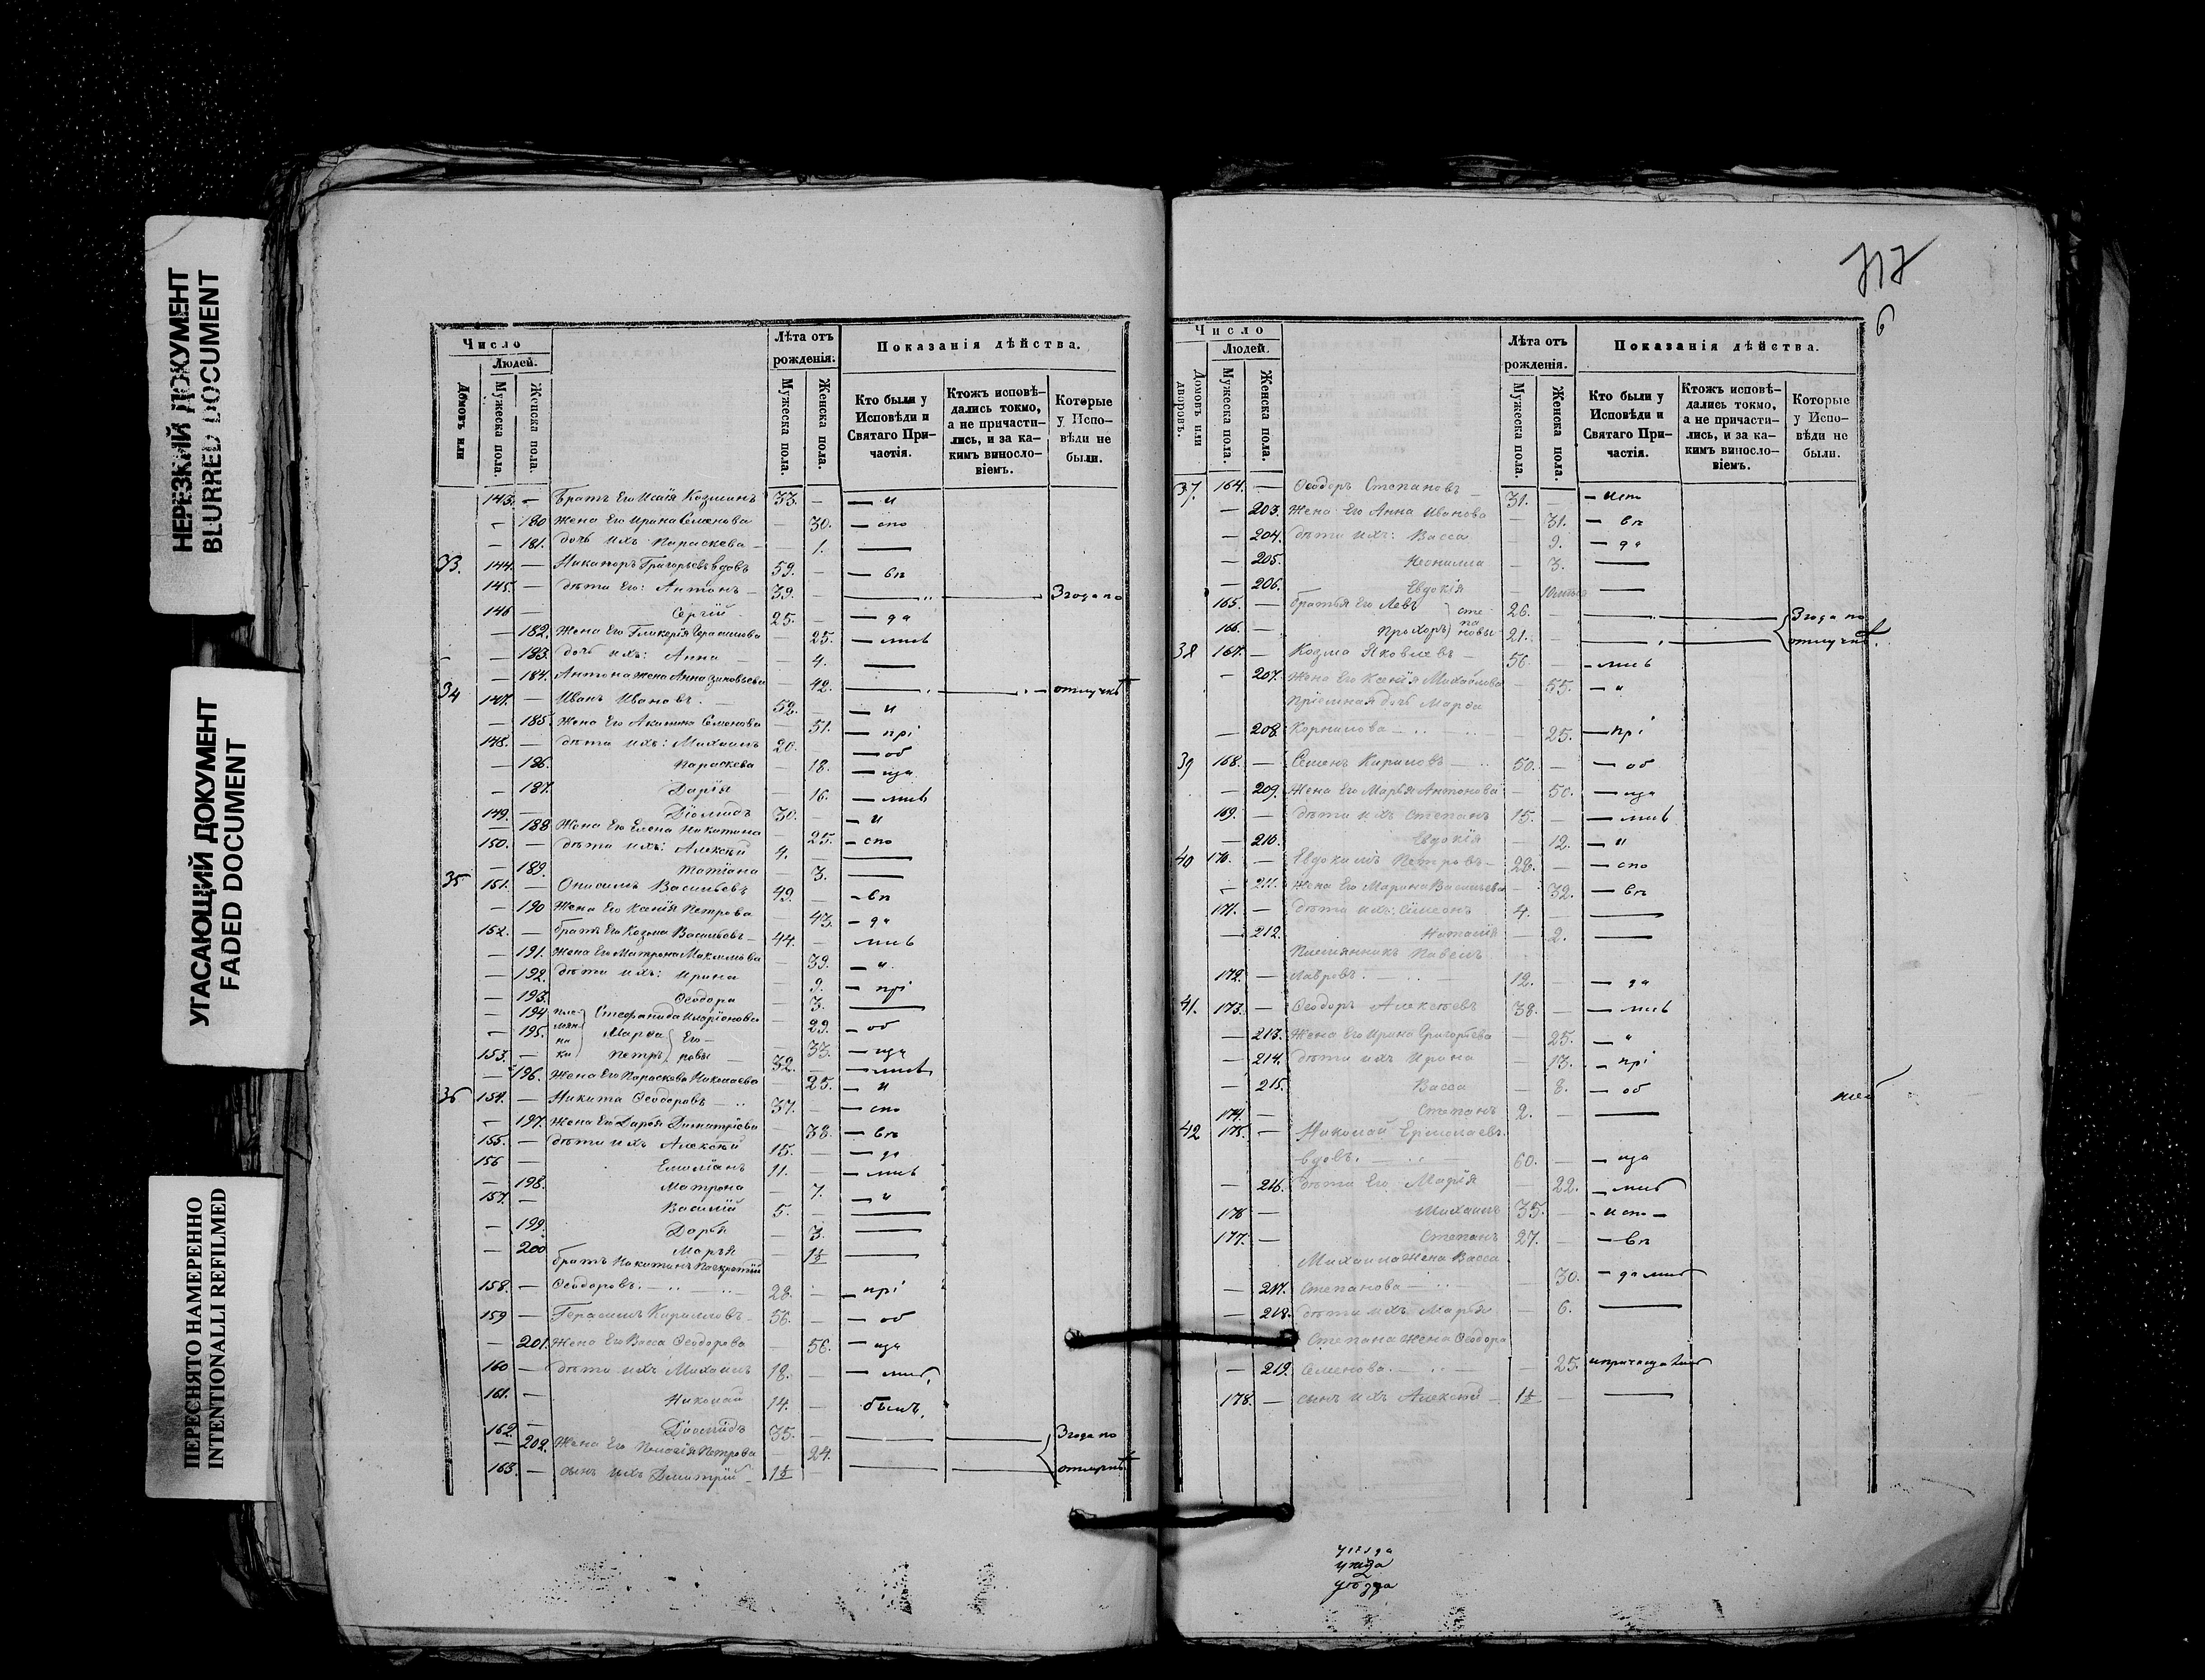 НЕРЕЗКИЙ ДОКУМЕНТ
BLURRED DOCUMENT
УГАСАЮЩИЙ ДОКУМЕНТ
FADED DOCUMENT
ПЕРЕСНЯТО НАМЕРЕННО
INTENTIONALLI REFILMED
Число
Людей.
Домовъ или
Мужеска пола.
Женска пола.
Лѣта отъ рожденія.
Мужеска пола.
Женска пола.
Показанія дѣйства.
Кто были у Исповѣди и Святаго Причастія.
Ктожъ исповѣдались токмо, а не причастились, и за какимъ винословіемъ.
Которые у Исповѣди не были.
143. — Братъ Его Исаія Козминъ 33. — — и
— 180 Жена Его Ирина Семенова — 30. — спо
— 181. дочь ихъ Параскева — — 1. —
33. 144. — Никаноръ Григорьевъ вдовъ 59. — — вѣ
145. — дѣти Его: Антонъ — 39. — — — 3 года по
146 — Сергій 25. — — да
— 182. Жена Его Гликерія Герасимова — 25. — лись
— 183. дочь ихъ: Анна — — 4. —
— 184. Антона жена Анна Зиновьева — 42. — — отлучкѣ
34 147. — Иванъ Ивановъ. — 52. — — и
— 185. Жена Его Акилина Семенова — 51. — прі
148. — дѣти ихъ: Михаилъ 20. — — об
— 186. Параскева — 18. — ща
— 187. Дарія — 16. — лись
149. — Діомидъ 30. — — и
— 188 Жена Его Елена Никитина — 25. — спо
150. — дѣти ихъ: Алексѣй 4. — —
— 189. Татіана — 3. —
35 151. — Онисимъ Васильевъ 49. — — вѣ
— 190 Жена Его Ксенія Петрова — 43. — да
152. — братъ Его Козма Васильевъ — 44. — лись
— 191. Жена Его Матрона Максимова — 39. — „
— 192. дѣти ихъ: Ирина — 9. — прі
— 193. Ѳеодора — 3. —
— 194. племянники Стефанида Иларіонова — 29. — об
— 195. Марѳа — 33. — ща
153. — Петръ Его-ровы 32. — — лись
— 196. Жена Его Параскева Николаева — 25. — и
36 154. — Никита Ѳеодоровъ — 37. — — спо
— 197. Жена Его Дарья Димитріева — 38. — вѣ
155. — дѣти ихъ Алексѣй 15. — — да
156 — Емиліанъ 11. — — лись
— 198. Матрона — 7. — „
157. — Василій 5. — —
— 199. Дарья — 3. —
— 200 Марья — 1½ —
братъ Никитинъ Панкратій
158. — Ѳеодоровъ. — 28. — — прі
159 — Герасимъ Кириловъ — 56. — — об
— 201. Жена Его Васса Ѳеодорова — 56. — ща
160 — дѣти ихъ Михаилъ 18. — — лись
161. — Николай 14. — былъ.
162 — Діомидъ 35. — — — 3 года по
— 202. Жена Его Пелагія Петрова — 24.
163. — сынъ ихъ Димитрій — 1½ — — — отлучкѣ
717
6
Число
Людей.
Домовъ или дворовъ.
Мужеска пола.
Женска пола.
Лѣта отъ рожденія.
Мужеска пола.
Женска пола.
Показанія дѣйства.
Кто были у Исповѣди и Святаго Причастія.
Ктожъ исповѣдались токмо, а не причастились, и за какимъ винословіемъ.
Которые у Исповѣди не были.
37. 164. — Ѳеодоръ Степановъ — 31. — — испо
— 203. Жена Его Анна Иванова — 31. — вѣ
— 204. дѣти ихъ: Васса — 9. — да
— 205. Неонилла — 3. —
— 206. Евдокія —
165. — братья Его Левъ 26. — — — 3 года по
166. — Прохоръ Степановы 21. — — — отлучкѣ.
38 167. — Козма Яковлевъ — 56. — — лись
— 207. Жена Его Ксенія Михайлова — 55. — „
Пріемная дочь Марѳа
— 208. Корнилова — — 25. — прі
39 168. — Семенъ Кириловъ — 50. — — об
— 209. Жена Его Марья Антонова — 50. — ща
169. — дѣти ихъ Степанъ 15. — — лись
— 210. Евдокія — 12. — и
40 170. — Евдокимъ Петровъ — 28. — — спо
— 211. Жена Его Марина Васильева — 32. — вѣ
171. — дѣти ихъ: Симеонъ 4. — —
— 212. Наталія — 2. —
Племянникъ Павелъ
172. — Лавровъ. 12. — — да
41. 173. — Ѳеодоръ Алексѣевъ 38. — — лись
— 213. Жена Его Ирина Григорьева — 25. — „
— 214. дѣти ихъ Ирина — 13. — прі
— 215. Васса — 8. — об
174. — Степанъ 2. — —
42 175. — Николай Ермолаевъ
вдовъ. — 60. — — ща
— 216. дѣти Его Марія — 22. — лись
176 — Михаилъ 35. — — испо —
177. — Степанъ 27. — — вѣ
Михаила жена Васса
— 217. Степанова — — 30. — дались
— 218. дѣти ихъ Марья — 6. —
Степана жена Ѳеодора
— 219. Семенова. — — 25. ипричащались
178. — сынъ ихъ Алексѣй — 1½ — —
уѣзда